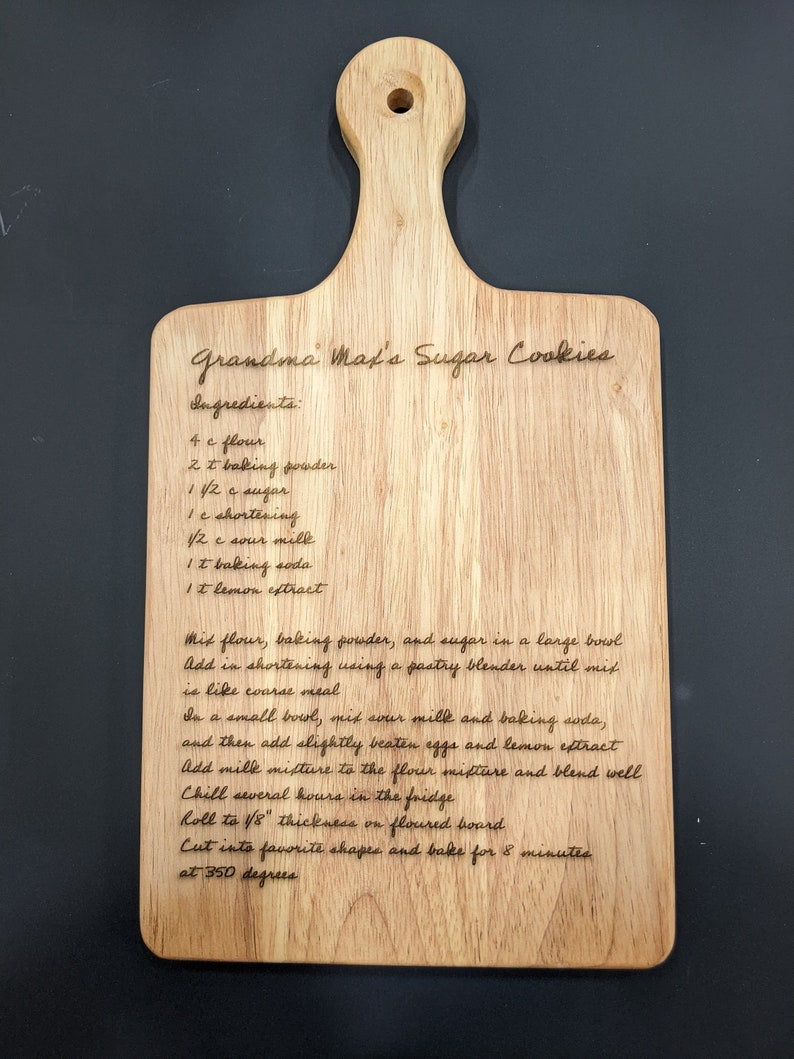 Grandma Max's Sugar Cookies
Ingredients:
4 c flour
2 t baking powder
1 1/2 c sugar
1 c shortening
1/2 c sour milk
1 t baking soda
1 t lemon extract
Mix flour, baking powder, and sugar in a large bowl
Add in shortening using a pastry blender until mix
is like coarse meal
In a small bowl, mix sour milk and baking soda,
and then add slightly beaten eggs and lemon extract
Add milk mixture to the flour mixture and blend well
Chill several hours in the fridge
Roll to 1/8" thickness on floured board
Cut into favorite shapes and bake for 8 minutes
at 350 degrees